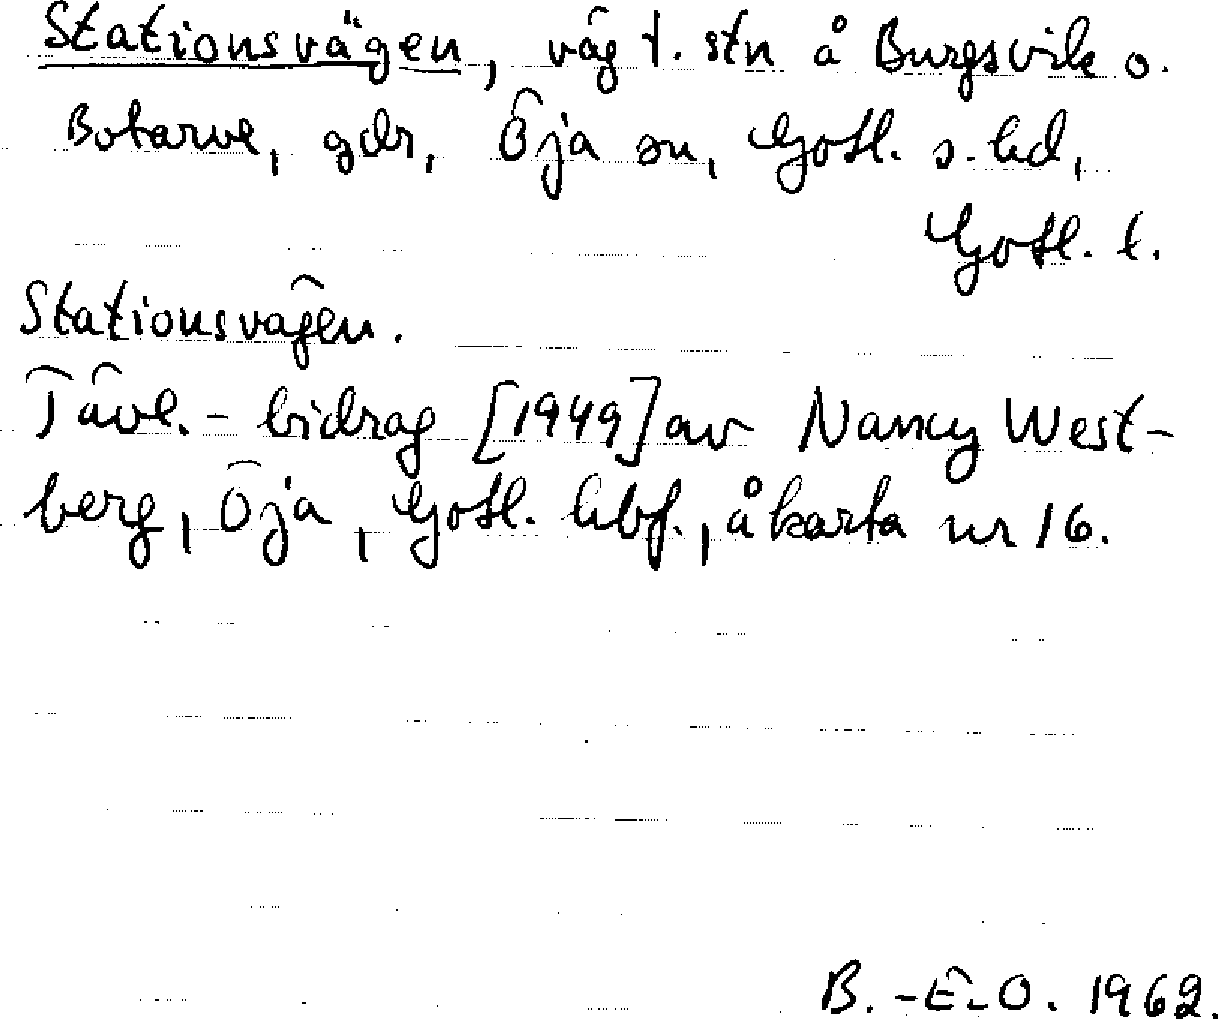 Stationsvägen, väg t. stn å Burgsvik o.
Botarve, gdr, Öja sn, Gotl. s. hd,
Gotl. l.
Stationsvägen.
Tävl.-bidrag [1949] av Nancy West-
berg, Öja, Gotl. hbf., å karta nr 16.
B.-E. O. 1962.